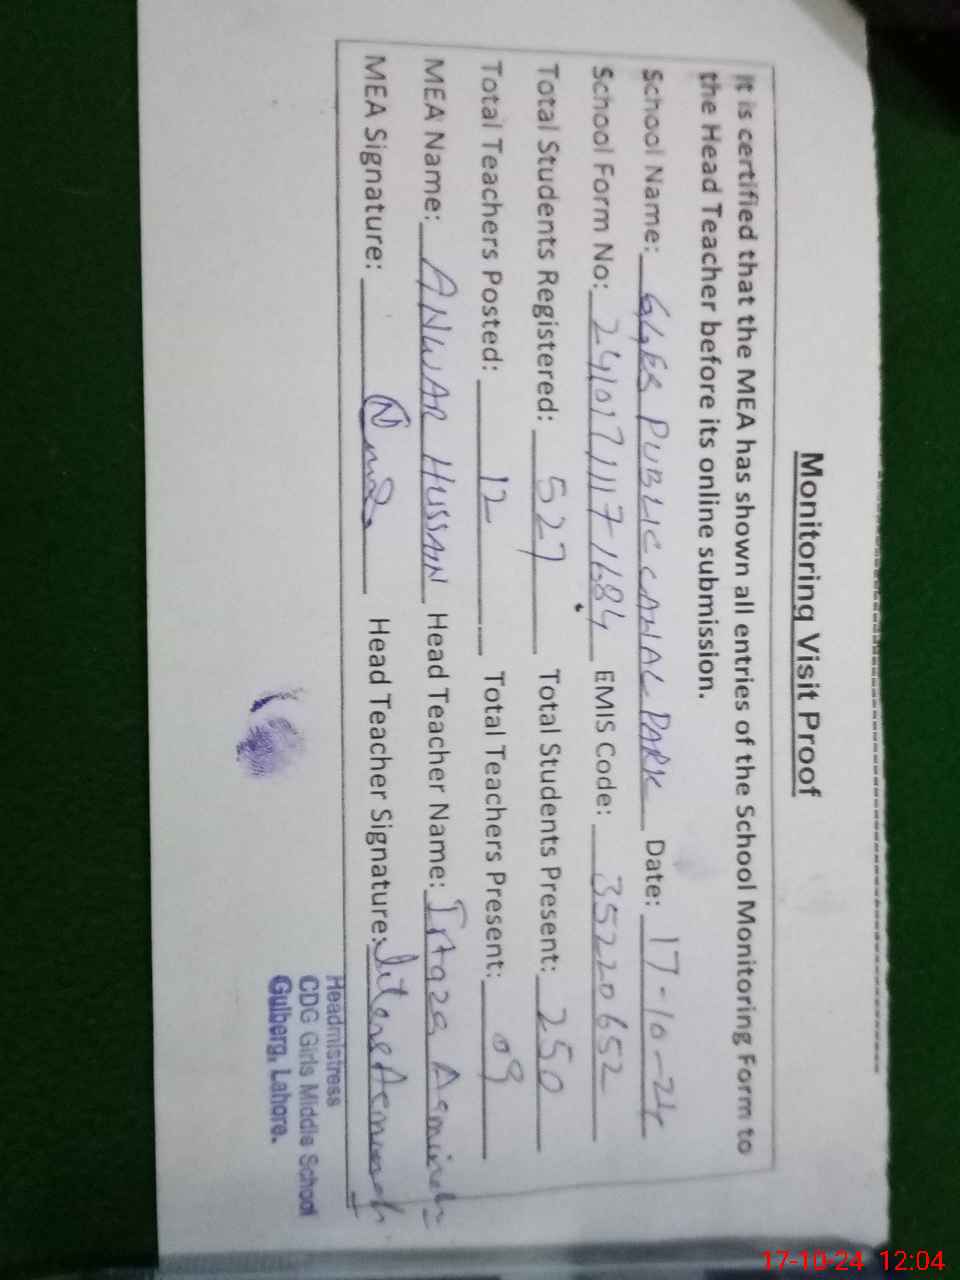 Monitoring Visit Proof
It is certified that the MEA has shown all entries of the School Monitoring Form to
the Head Teacher before its online submission.
School Name: PUBLIC CANAL PARK Date: 17-10-24
School Form No: EMIS Code: 35220652
Total Students Registered: 527 Total Students Present: 250
Total Teachers Posted: 12 Total Teachers Present: 09
MEA Name: ANWAR HUSSAIN Head Teacher Name:
MEA Signature: Head Teacher Signature:
Headmistress
CDG Girls Middle School
Gulberg, Lahore.
17-10-24 12:04